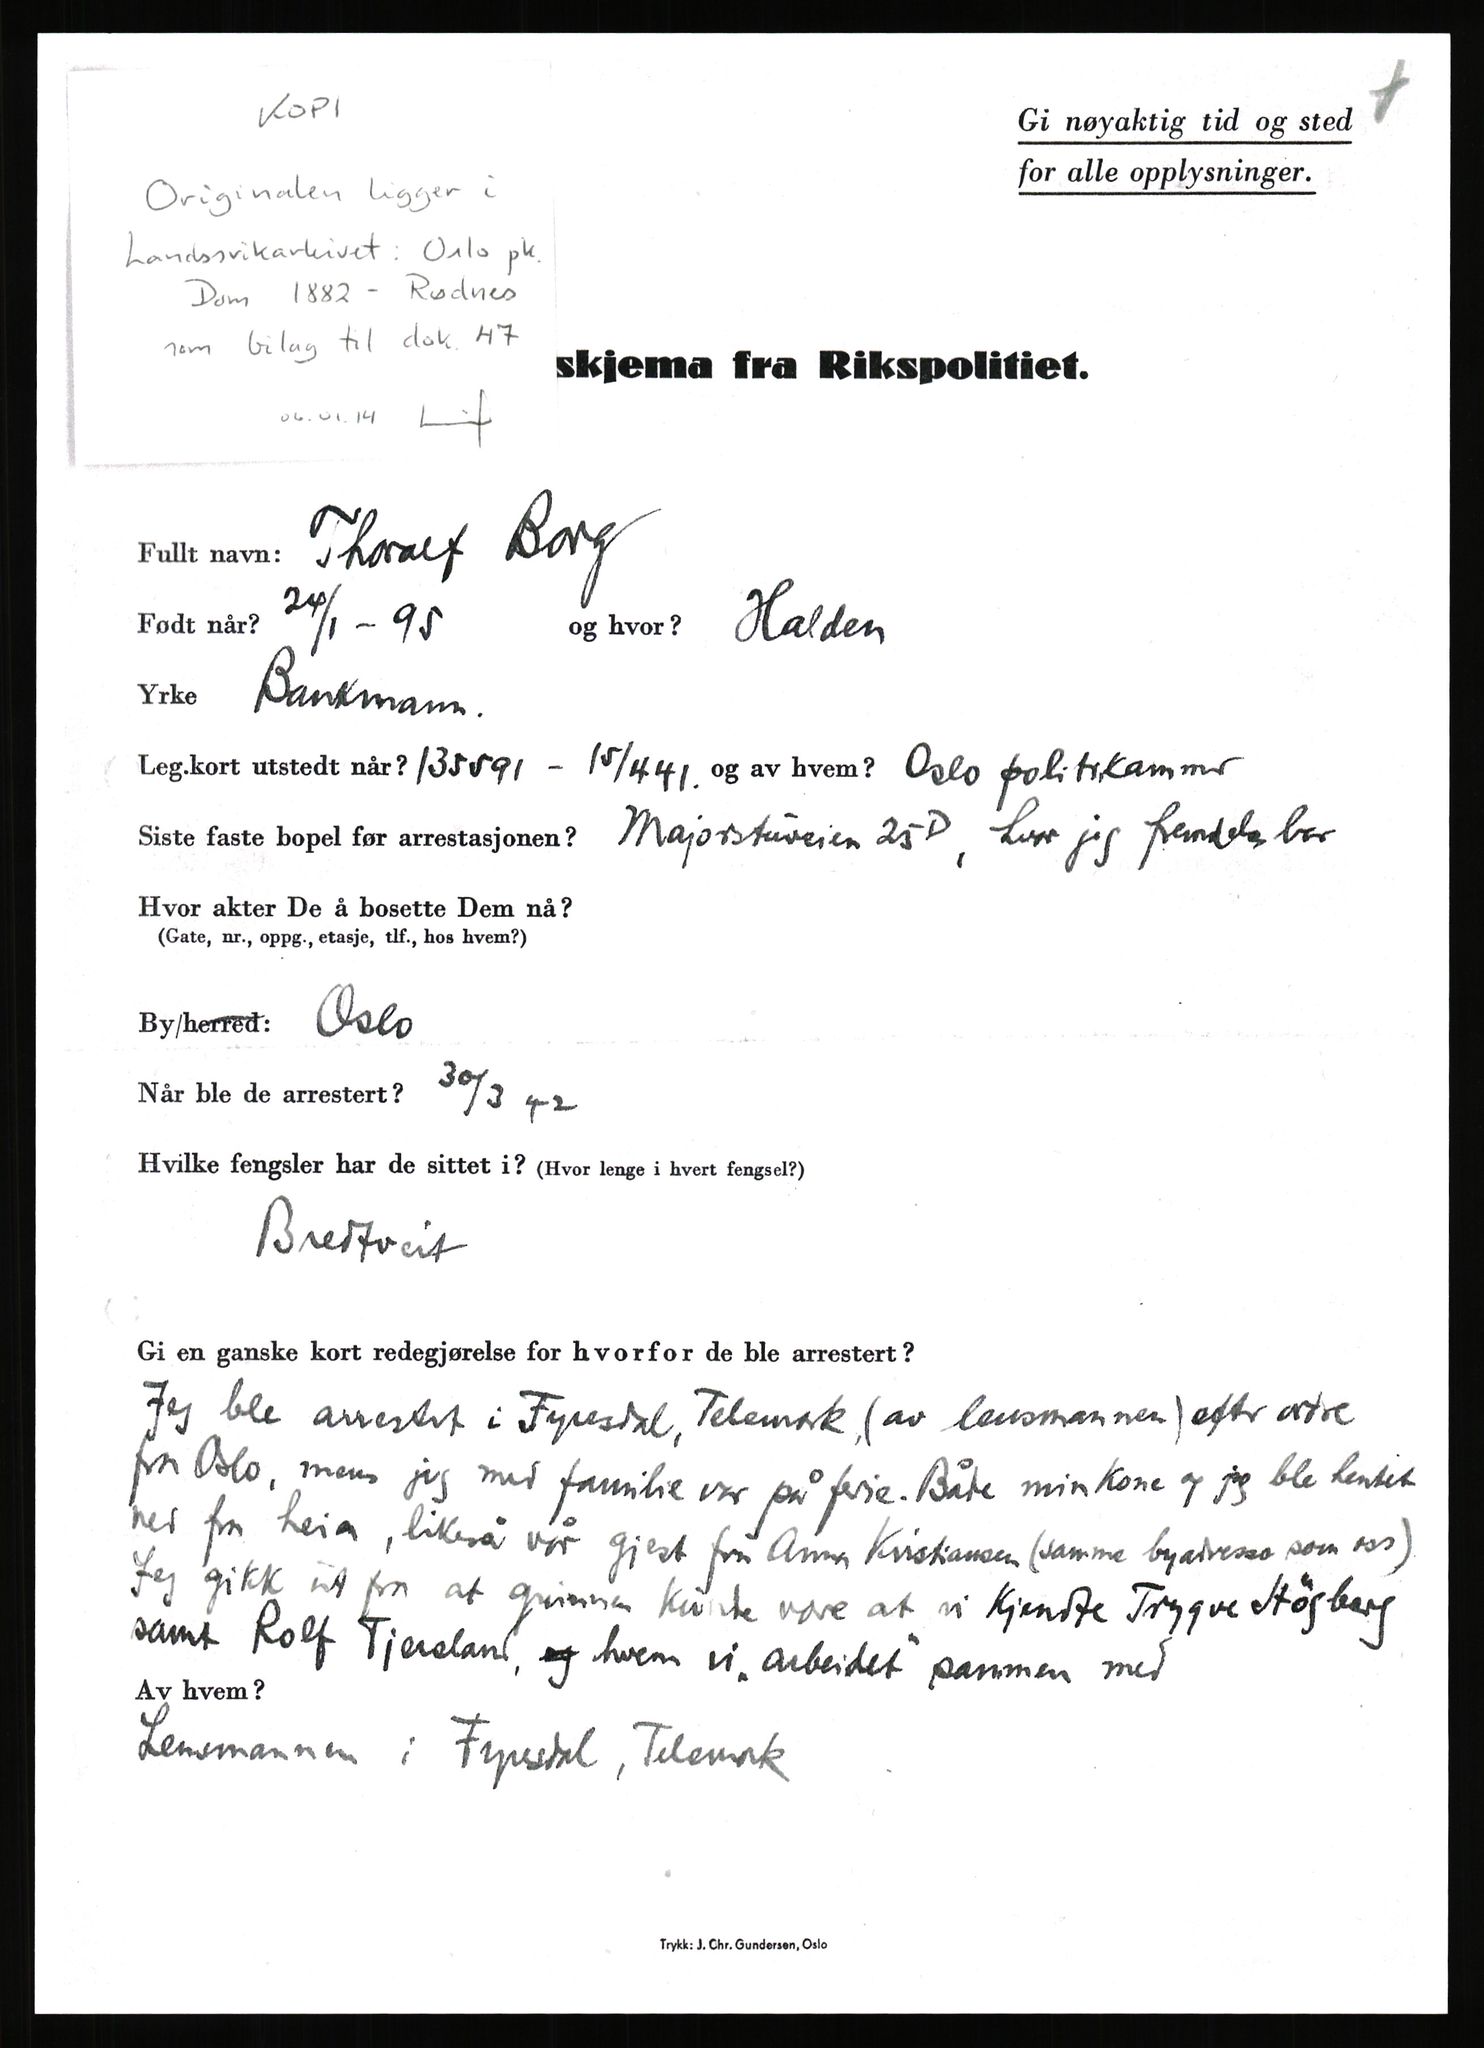 KOPI
Originalen ligger i
Landssvikarkivet: Oslo pk.
Dom 1882 - Rødnes
som bilag til dok. 47
06.01.14
Gi nøyaktig tid og sted
for alle opplysninger.
skjema fra Rikspolitiet.
Fullt navn: Thoralf Borg
Født når? 24/1 - 95 og hvor? Halden
Yrke Bankmann.
Leg.kort utstedt når? 135591 - 15/4 41. og av hvem? Oslo politikammer
Siste faste bopel før arrestasjonen? Majorstuveien 25D, hvor jeg fremdeles bor
Hvor akter De å bosette Dem nå?
(Gate, nr., oppg., etasje, tlf., hos hvem?)
By/herred: Oslo
Når ble de arrestert? 30/3 42
Hvilke fengsler har de sittet i? (Hvor lenge i hvert fengsel?)
Bredtveit
Gi en ganske kort redegjørelse for hvorfor de ble arrestert?
Jeg ble arrestert i Fyresdal, Telemark, (av lensmannen) efter ordre
fra Oslo, mens jeg med familie var på ferie. Både min kone og jeg ble hentet
ned fra heia, likeså vår gjest fru Anna Kristiansen (samme byadresse som oss)
Jeg gikk ut fra at grunnen kunde være at vi kjendte Trygve Högberg
samt Rolf Tjersland, og hvem vi "arbeidet" sammen med
Av hvem?
Lensmannen i Fyresdal, Telemark
Trykk: J. Chr. Gundersen, Oslo